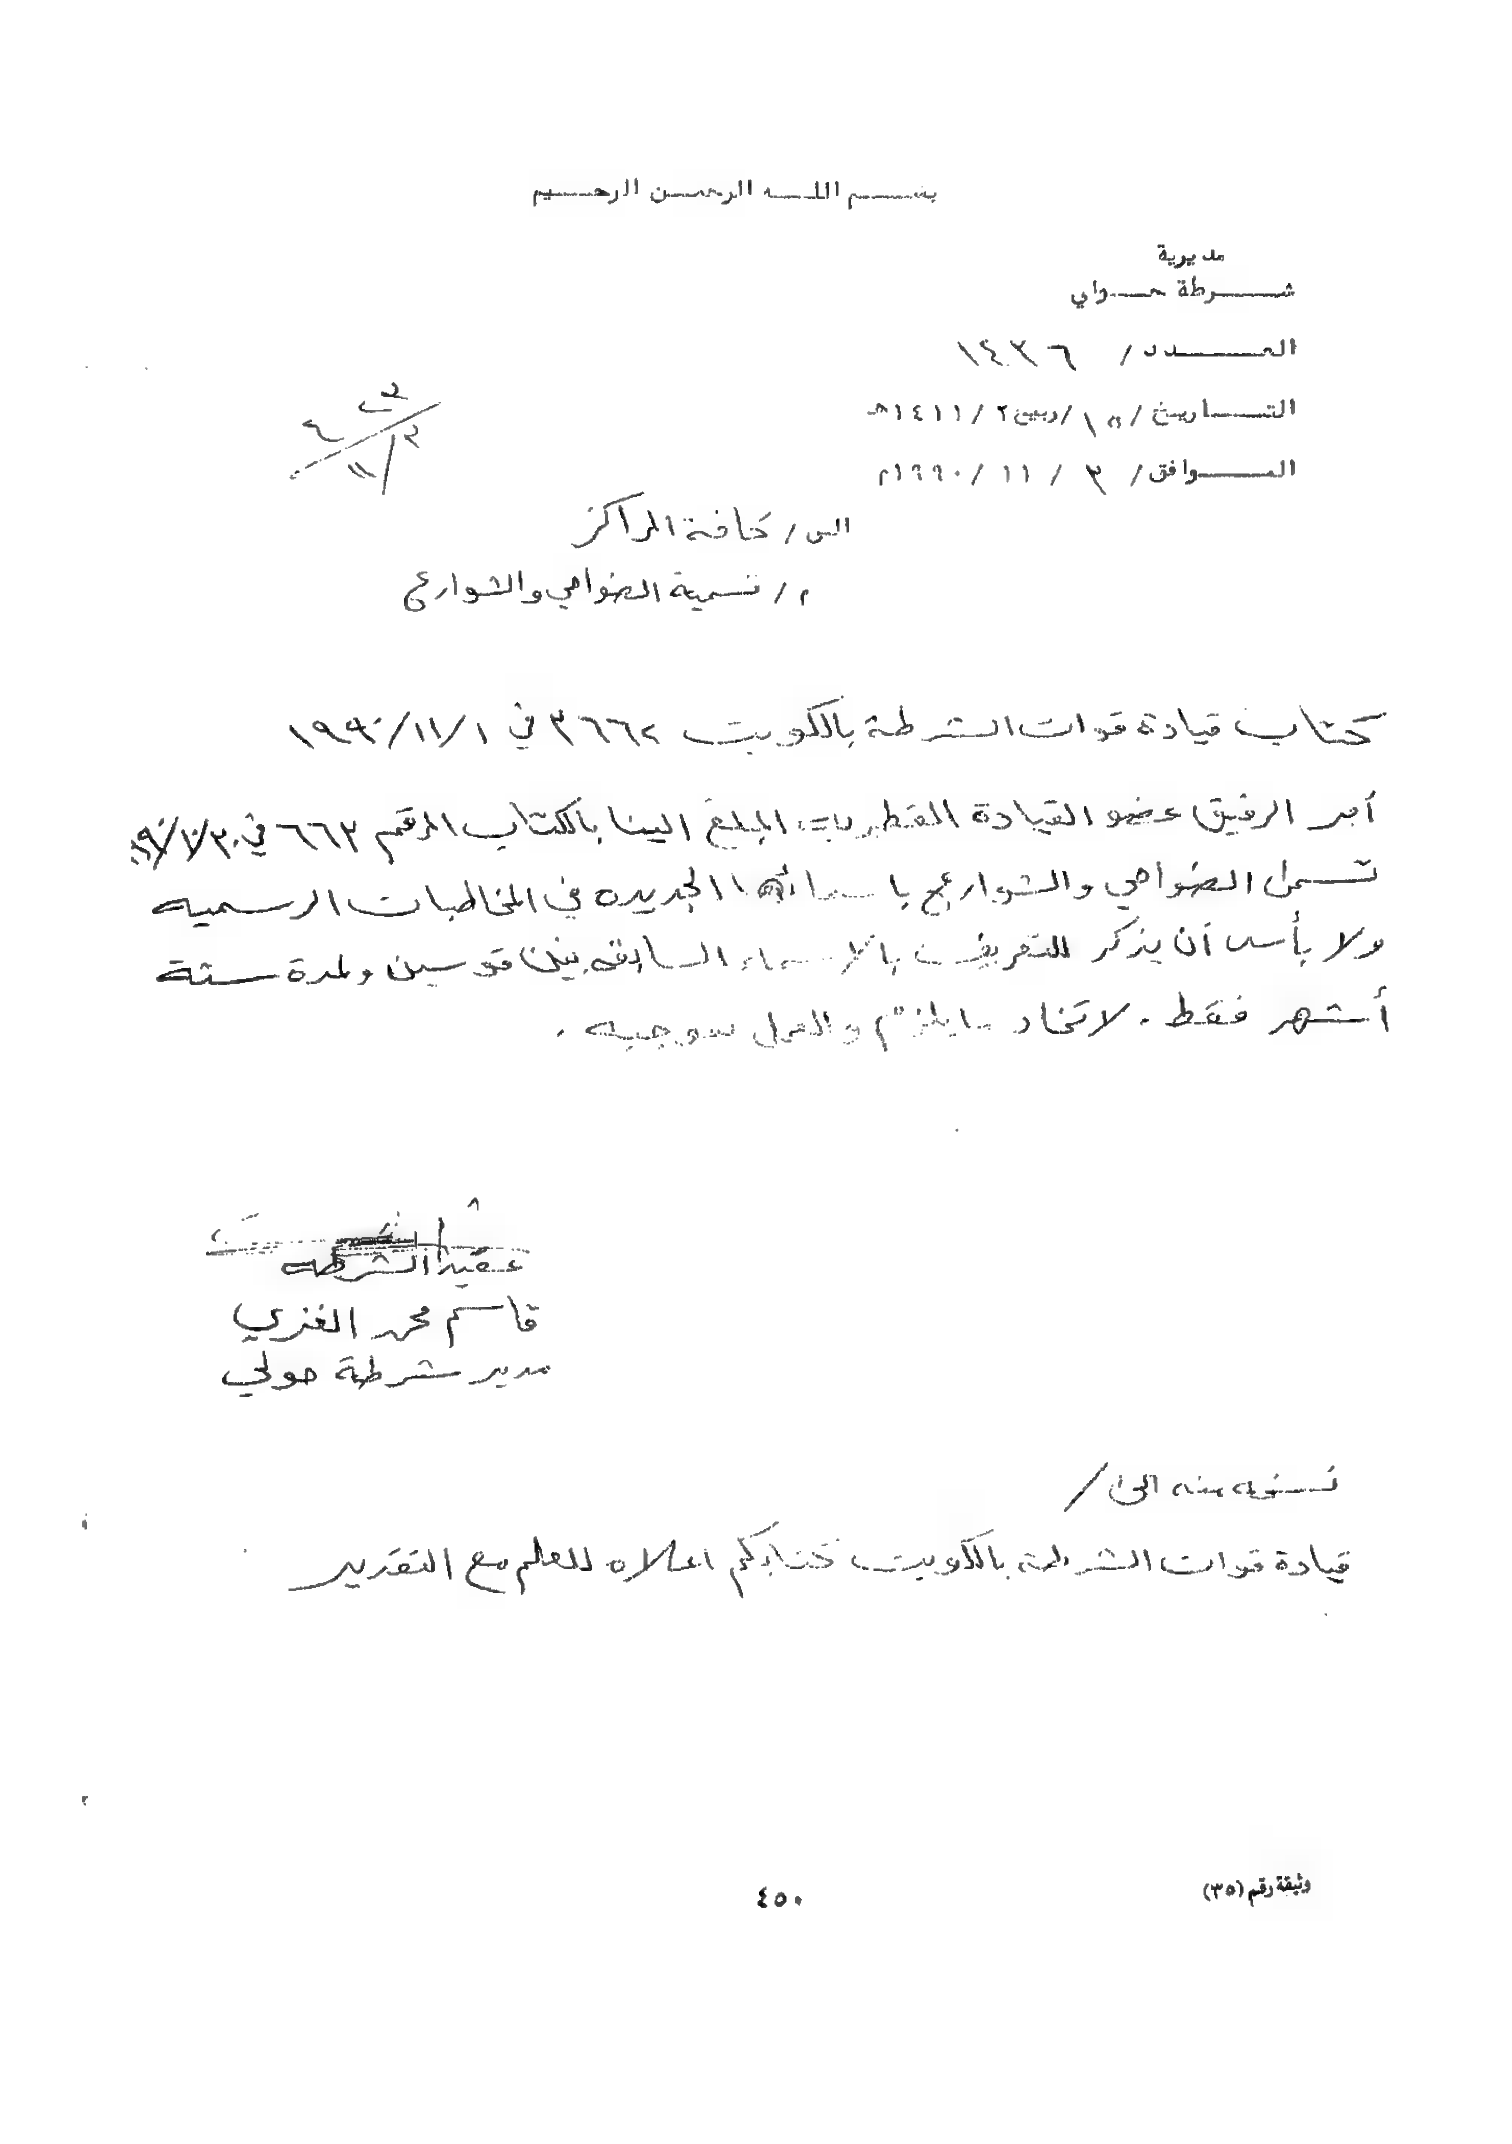 بســـم اللــه الرحمــن الرحـــيم
مديرية
شــــرطة حــولي
العـــــدد / ١٤٣٦
التـــاريخ / ١٥ / ربيع٢ / ١٤١١هـ
المـــوافق / ٣ / ١١ / ١٩٩٠م
٤
١١/٣
الى / كافة المراكز
م / تسمية الضواحي والشوارع
كتاب قيادة قوات الشرطة بالكويت ٣٦٦٢ في ١٩٩٠/١١/١
أمر الرفيق عضو القيادة القطرية المبلغ الينا بالكتاب المرقم ٦٦٣ في
تسمى الضواحي والشوارع باسمائها الجديده في المخاطبات الرسميه
ولا بأس أن يذكر للتعريف بالاسماء السابقه بين قوسين ولمدة ستة
أشهر فقط . لاتخاذ مايلزم والعمل بموجبه .
عقيد الشرطه
قاسم محمد الغزي
مدير شرطة حولي
نسخه منه الى /
قيادة قوات الشرطة بالكويت كتابكم اعلاه للعلم مع التقدير
وثيقة رقم (٣٥)
٤٥٠